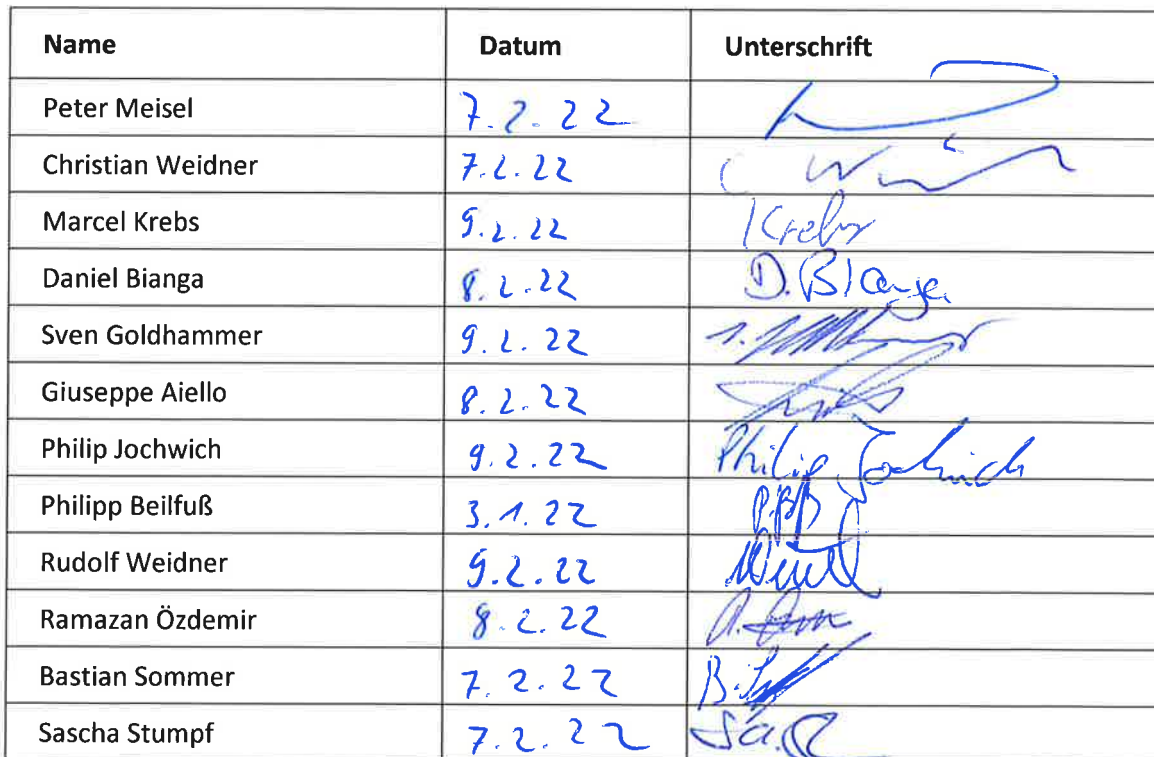 Name Datum Unterschrift
Peter Meisel 7.2.22
Christian Weidner 7.2.22
Marcel Krebs 9.2.22 Krebs
Daniel Bianga 8.2.22 D. Bianga
Sven Goldhammer 9.2.22
Giuseppe Aiello 8.2.22
Philip Jochwich 9.2.22 Philip Jochwich
Philipp Beilfuß 3.1.22
Rudolf Weidner 9.2.22
Ramazan Özdemir 8.2.22
Bastian Sommer 7.2.22
Sascha Stumpf 7.2.22